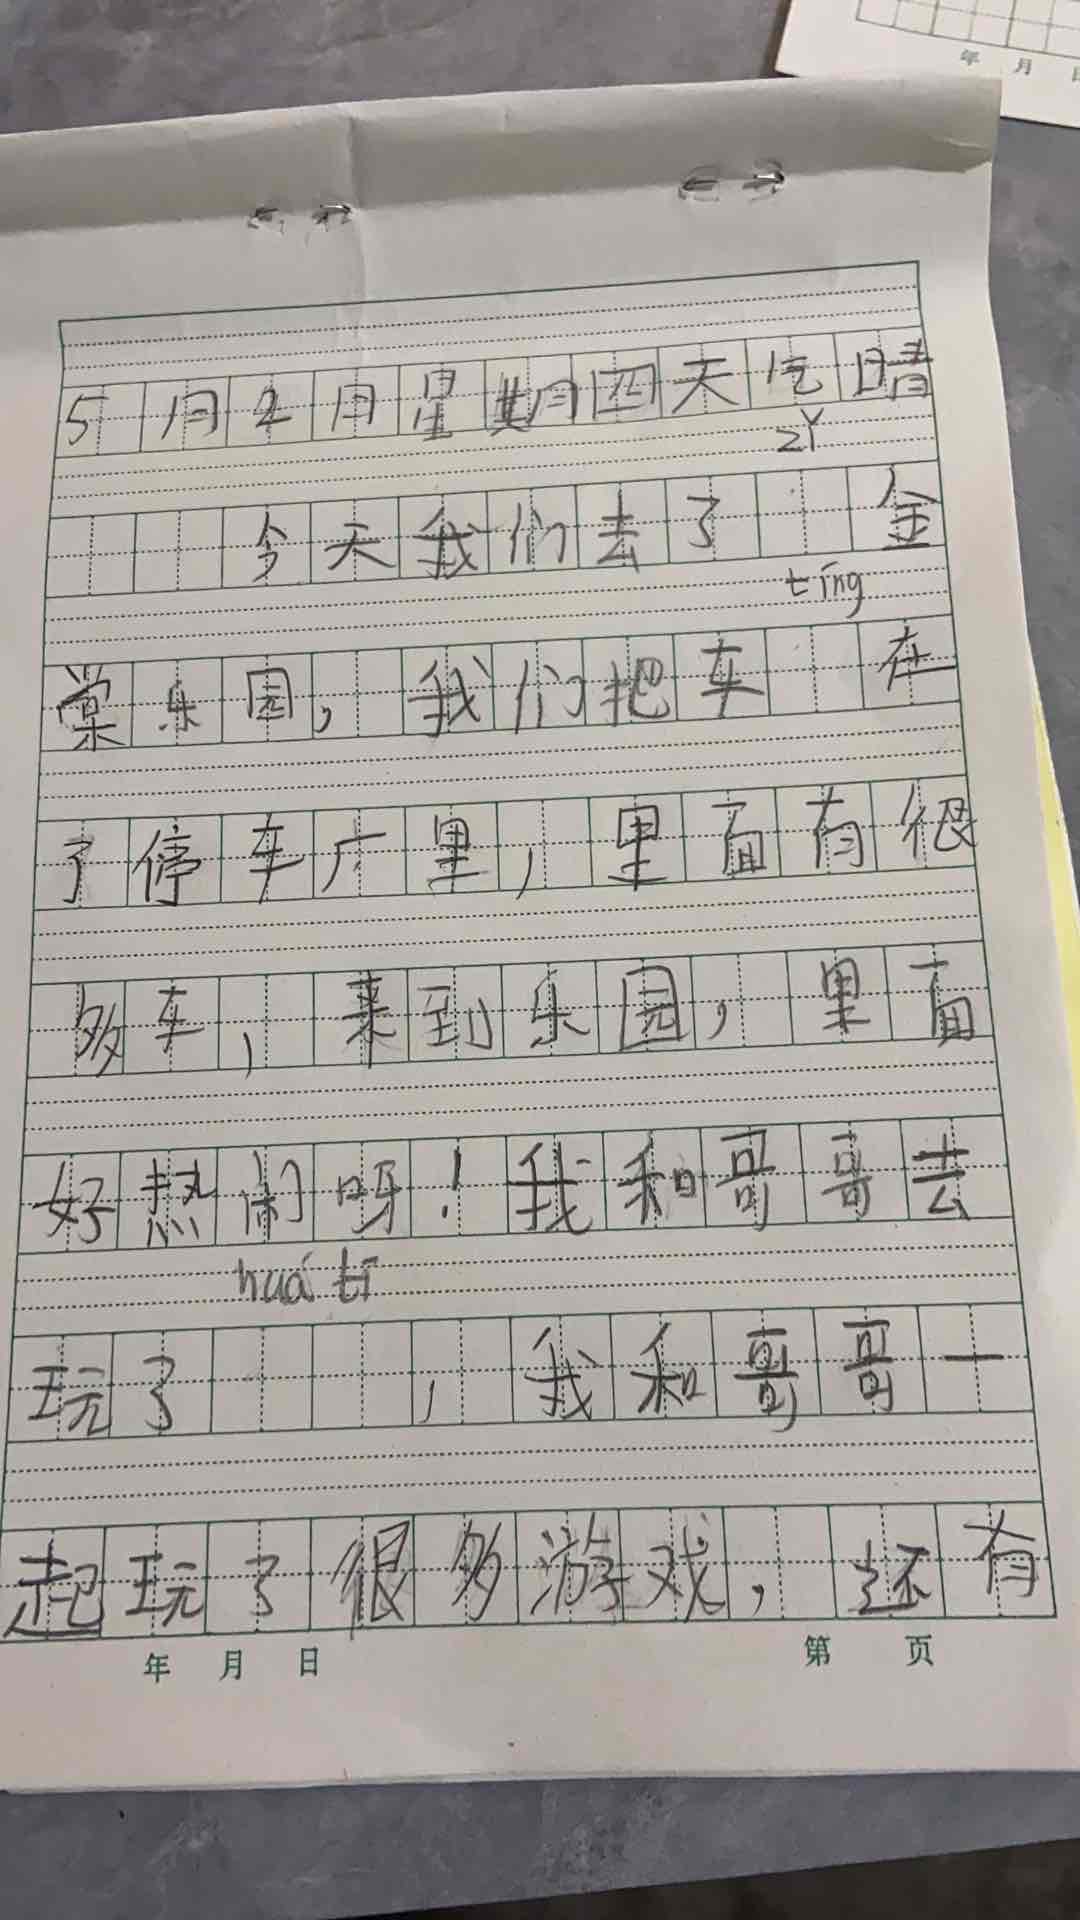 年 月 日
5月2月星期四天气晴
zǐ
今天我们去了 金
tíng
棠乐园，我们把车 在
了停车厂里，里面有很
多车，来到乐园，里面
好热闹呀！我和哥哥去
huá tī
玩了 ，我和哥哥一
起玩了很多游戏，还有
年 月 日 第 页